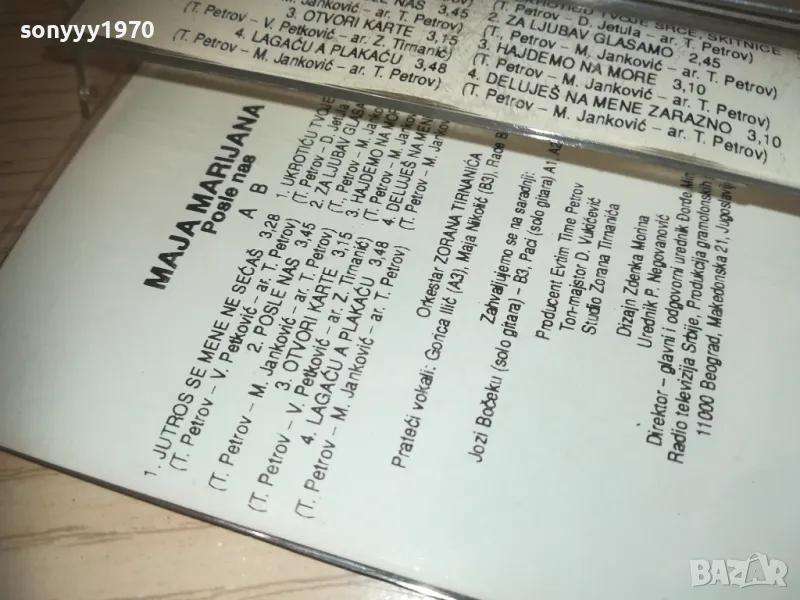 sonyyy1970
3,45
3. OTVORI KARTE 3,15
(T. Petrov – V. Petković – ar. Z. Tirnanić)
4. LAGAĆU A PLAKAĆU 3,48
(T. Petrov – M. Janković – ar. T. Petrov)
SRCE, SKITNICE
(T. Petrov – D. Jetula – ar. T. Petrov)
2. ZA LJUBAV GLASAMO 2,45
(T. Petrov – M. Janković – ar. T. Petrov)
3. HAJDEMO NA MORE 3,10
(T. Petrov – M. Janković – ar. T. Petrov)
4. DELUJEŠ NA MENE ZARAZNO 3,10
(T. Petrov – M. Janković – ar. T. Petrov)
MAJA MARIJANA
Posle nas
A
1. JUTROS SE MENE NE SEĆAŠ 3,28
(T. Petrov – V. Petković – ar. T. Petrov)
2. POSLE NAS 3,45
(T. Petrov – M. Janković – ar. T. Petrov)
3. OTVORI KARTE 3,15
(T. Petrov – V. Petković – ar. Z. Tirnanić)
4. LAGAĆU A PLAKAĆU 3,48
(T. Petrov – M. Janković – ar. T. Petrov)
B
1. UKROTIĆU TVOJE
(T. Petrov – D. Jetula
2. ZA LJUBAV GLASA
(T. Petrov – M. Janko
3. HAJDEMO NA
(T. Petrov – M. Janko
4. DELUJEŠ NA MEN
(T. Petrov – M. Jankov
Orkestar ZORANA TIRNANIĆA
Prateći vokali: Gorica Ilić (A3), Maja Nikolić (B3), Rade B
Zahvaljujemo se na saradnji:
Jozi Bočeku (solo gitara) – B3, Paci (solo gitara) A1, A2
Producent Evrim Time Petrov
Ton-majstor D. Vukićević
Studio Zorana Tirnanića
Dizajn Zdenka Morina
Urednik P. Negovanović
Direktor – glavni i odgovorni urednik Đorđe Min
Radio televizija Srbije, Produkcija gramofonskih
11000 Beograd, Makedonska 21, Jugoslavij
BAZAR